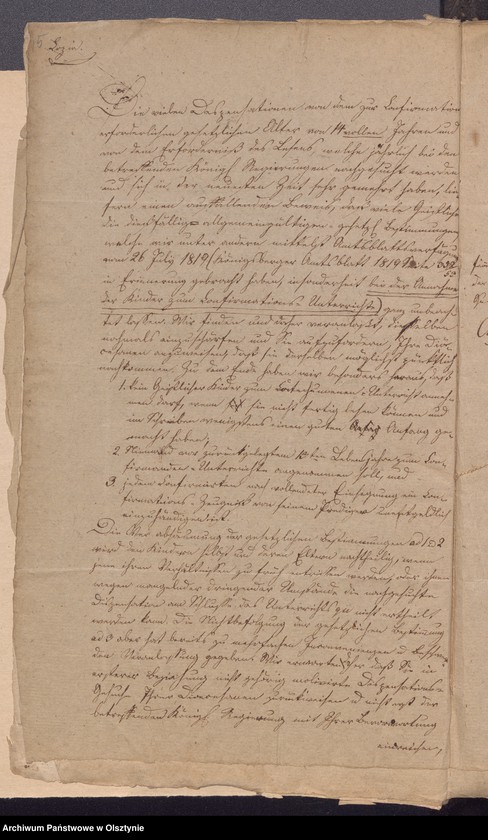 Die vielen Dispensationen von dem zur Confirmation
erforderlichen gesetzlichen Alter von 14 vollen Jahren und
von dem Erforderniß des Lesens, welche jährlich bei den
betreffenden Königl. Regierungen nachgesucht werden
und sich in der neuesten Zeit sehr gemehrt haben, lie-
fern einen auffallenden Beweis, daß viele Geistliche
die diesfälligen allgemeingültigen gesetzl. Bestimmungen
welche wir unter andern mittelst Amtsblattsverfügung
vom 26 July 1819 (Königsberger Amtsblatt 1819
in Erinnerung gebracht haben, insonderheit bei der Annahme
der Kinder zum Confirmations-Unterricht) ganz unbeach-
tet lassen. Wir finden uns daher veranlaßt, dieselben
nochmals einzuschärfen und Sie aufzufordern, Ihre Diö-
cesanen anzuweisen, daß sie derselben möglichst pünktlich
nachkommen. Zu dem Ende haben wir besonders heraus, daß
1. kein Geistlicher Kinder zum Catechumenen-Unterricht anneh-
men darf, wenn sie nicht fertig lesen können und
im Schreiben wenigstens einen guten Anfang ge-
macht haben,
2. Niemand vor zurückgelegtem 13ten Lebensjahre zum Con-
firmanden-Unterrichte angenommen soll, und
3. jedem Confirmirten nach vollendeter Einsegnung ein Con-
firmations-Zeugniß von seinem Prediger unentgeldlich
einzuhändigen ist.
Die Nicht der gesetzlichen Bestimmungen ad 1 & 2
wird den Kindern selbst und deren Eltern nachtheilig, wenn
jene ihren Verhältnissen zu früh entrissen werden, oder ihnen
wegen mangelnder dringender Umstände die nachgesuchte
Dispensation am Schlusse des Unterrichts nicht ertheilt
werden kann. Die Nichtbefolgung der gesetzlichen Bestimmung
ad 3 aber hat bereits zu mehrfachen Inconvenienzen u. Beschwer-
den Veranlassung gegeben. Wir erwarten daß Sie in
ersterer Beziehung nicht gehörig motivirte Dispensations-
Gesuche Ihrer Diöcesanen zurückweisen u. nicht erst der
betreffenden Königl. Regierung mit Ihrer Bevorwortung
einreichen,
Archiwum Państwowe w Olsztynie